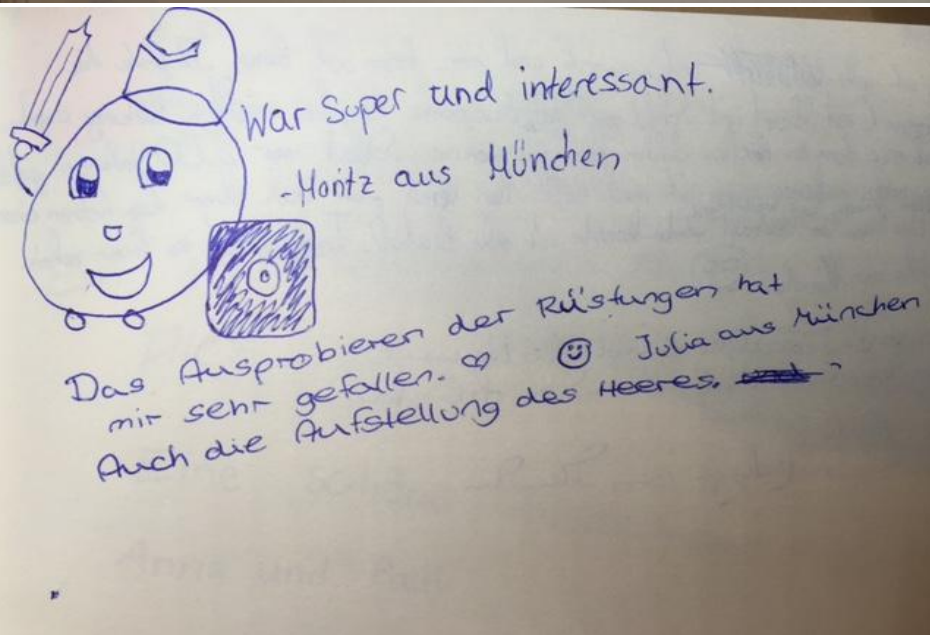 War super und interessant.
-Moritz aus München
Das Ausprobieren der Rüstungen hat
mir sehr gefallen. ♡ ☺ Julia aus München
Auch die Aufstellung des Heeres.